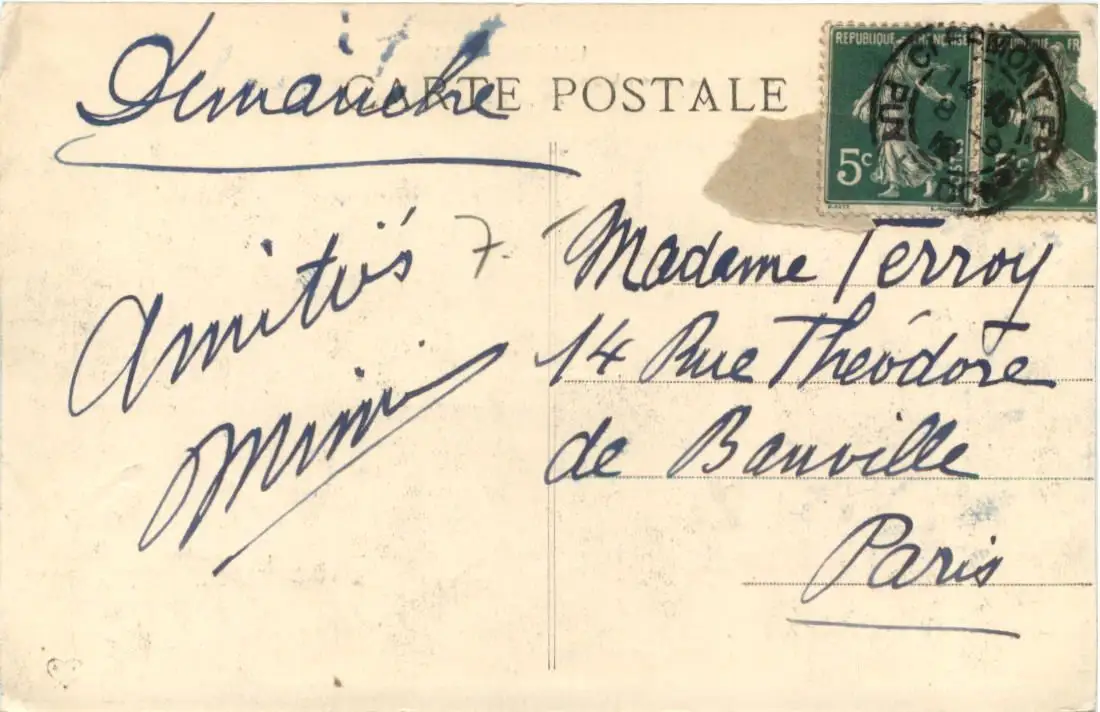 Dimanche
CARTE POSTALE
RÉPUBLIQUE FRANÇAISE
5c
POSTES
Amitiés
7.
Mimi
Madame Terroy
14 Rue Théodore
de Banville
Paris